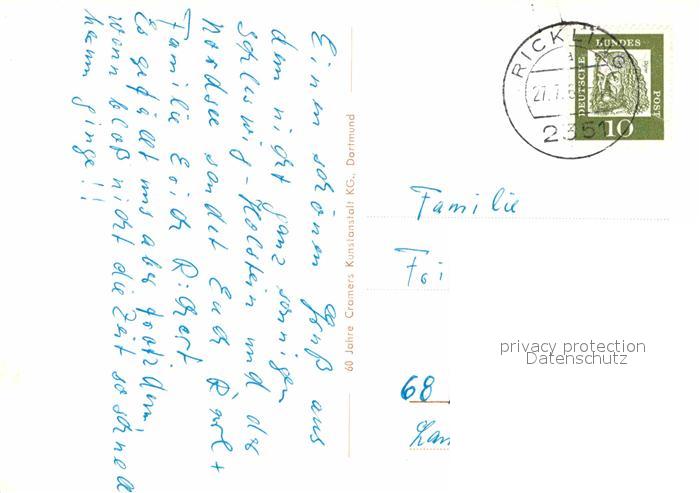 Einen schönen Gruß aus
dem nicht ganz sonnigen
Schleswig-Holstein und der
Nordsee sendet Euch +
Familie Erich
Es gefällt uns aber trotzdem
wenn bloß nicht die Zeit so schnell
herum ginge!!
60 Jahre Cramers Kunstanstalt KG., Dortmund
RICKLING
a
27.7.6
2351
DEUTSCHE BUNDES POST
Dürer
10
Familie
68
privacy protection
Datenschutz